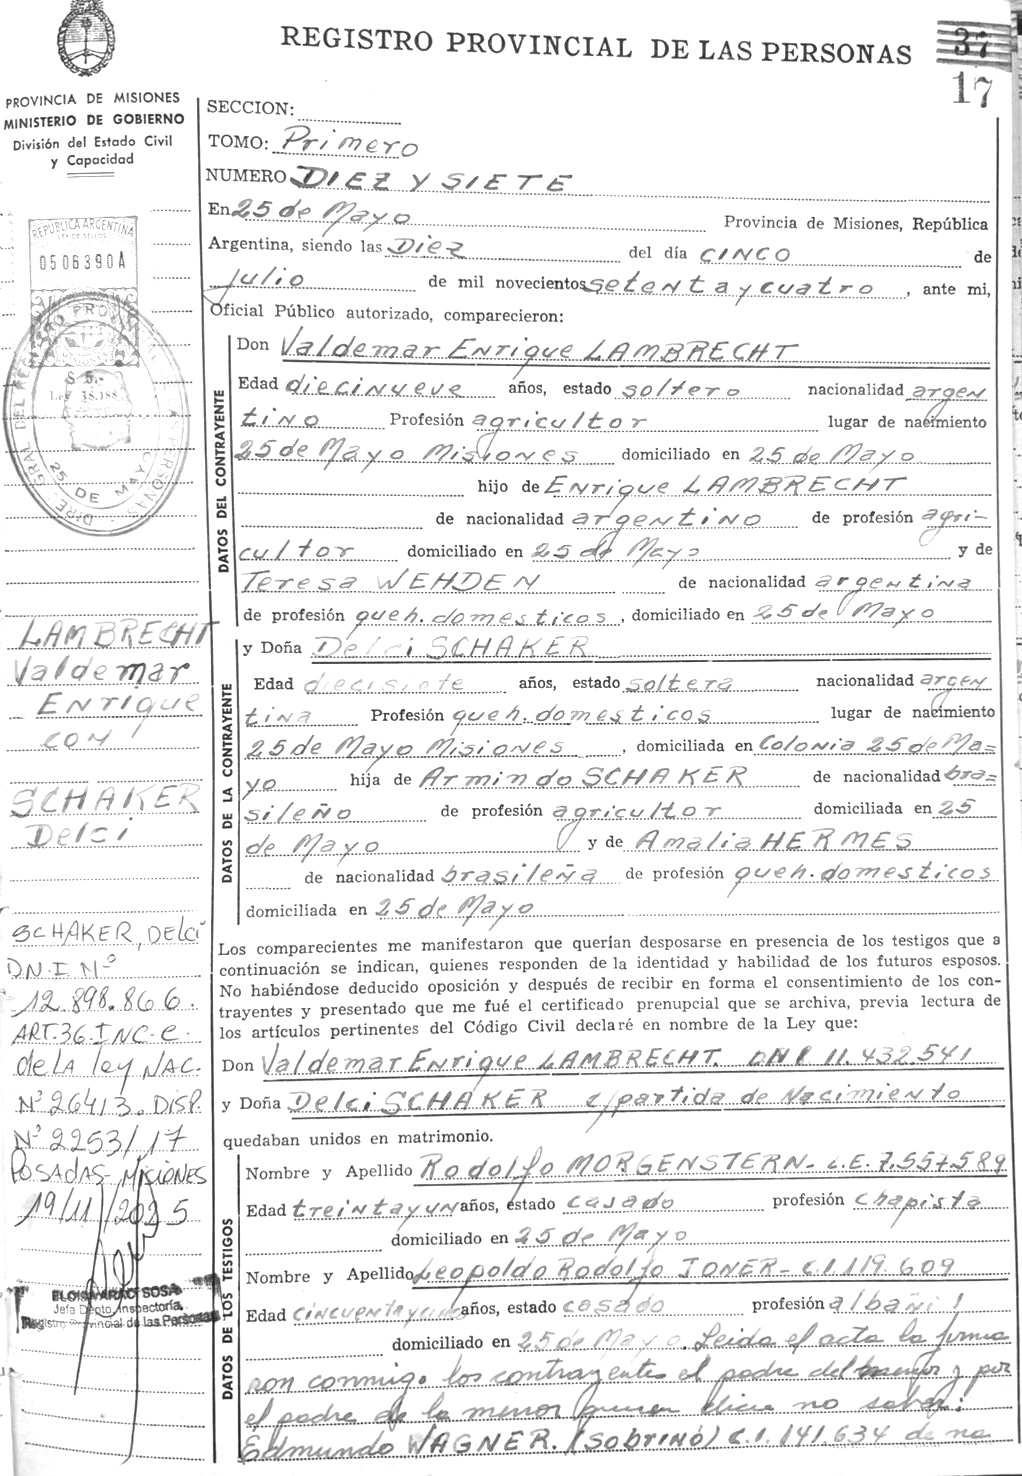 REGISTRO PROVINCIAL DE LAS PERSONAS
37
17
PROVINCIA DE MISIONES
MINISTERIO DE GOBIERNO
División del Estado Civil
y Capacidad
REPUBLICA ARGENTINA
LEY DE SELLOS
0506390A
Ley 18.188
25 DE MAYO
LAMBRECHT
Valdemar
Enrique
con
SCHAKER
Delci
SCHAKER, Delci
D.N.I Nº
12.898.866
ART.36.INC-e.
de LA ley NAC.
Nº 26413. DISP.
Nº 2253/17
POSADAS-MISIONES
19/11/2025
SOSA
Jefa Dpto. Inspectoría
Registro Provincial de las Personas
SECCION:
TOMO: Primero
NUMERO DIEZ Y SIETE
En 25 de Mayo Provincia de Misiones, República
Argentina, siendo las Diez del día CINCO de
Julio de mil novecientos setenta y cuatro, ante mi,
Oficial Público autorizado, comparecieron:
DATOS DEL CONTRAYENTE
Don Valdemar Enrique LAMBRECHT
Edad diecinueve años, estado soltero nacionalidad argen
tino Profesión agricultor lugar de nacimiento
25 de Mayo Misiones domiciliado en 25 de Mayo
hijo de Enrique LAMBRECHT
de nacionalidad argentino de profesión agri-
cultor domiciliado en 25 de Mayo y de
Teresa WEHDEN de nacionalidad argentina
de profesión queh. domesticos, domiciliado en 25 de Mayo
DATOS DE LA CONTRAYENTE
y Doña Delci SCHAKER
Edad diecisiete años, estado soltera nacionalidad argen
tina Profesión queh. domesticos lugar de nacimiento
25 de Mayo Misiones, domiciliada en Colonia 25 de Ma=
yo hija de Armindo SCHAKER de nacionalidad bra=
sileño de profesión agricultor domiciliada en 25
de Mayo y de Amalia HERMES
de nacionalidad brasileña de profesión queh. domesticos
domiciliada en 25 de Mayo
Los comparecientes me manifestaron que querían desposarse en presencia de los testigos que a
continuación se indican, quienes responden de la identidad y habilidad de los futuros esposos.
No habiéndose deducido oposición y después de recibir en forma el consentimiento de los con-
trayentes y presentado que me fué el certificado prenupcial que se archiva, previa lectura de
los artículos pertinentes del Código Civil declaré en nombre de la Ley que:
Don Valdemar Enrique LAMBRECHT. DNI 11.432.541
y Doña Delci SCHAKER c/partida de Nacimiento
quedaban unidos en matrimonio.
DATOS DE LOS TESTIGOS
Nombre y Apellido Rodolfo MORGENSTERN- L.E. 7.557.589
Edad treinta y un años, estado casado profesión chapista
domiciliado en 25 de Mayo
Nombre y Apellido Leopoldo Rodolfo JONER- C.I 119.609
Edad años, estado casado profesión albañil
domiciliado en 25 de Mayo. Leida el acta la firma
ron conmigo los contrayentes el padre del menor y por
el padre de la menor quien dice no saber:
Edmundo WAGNER. (Sobrino) C.I. 141.634 de na